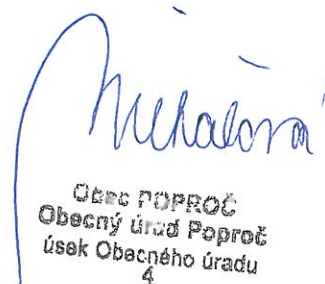 Michalová
Obec POPROČ
Obecný úrad Poproč
úsek Obecného úradu
4